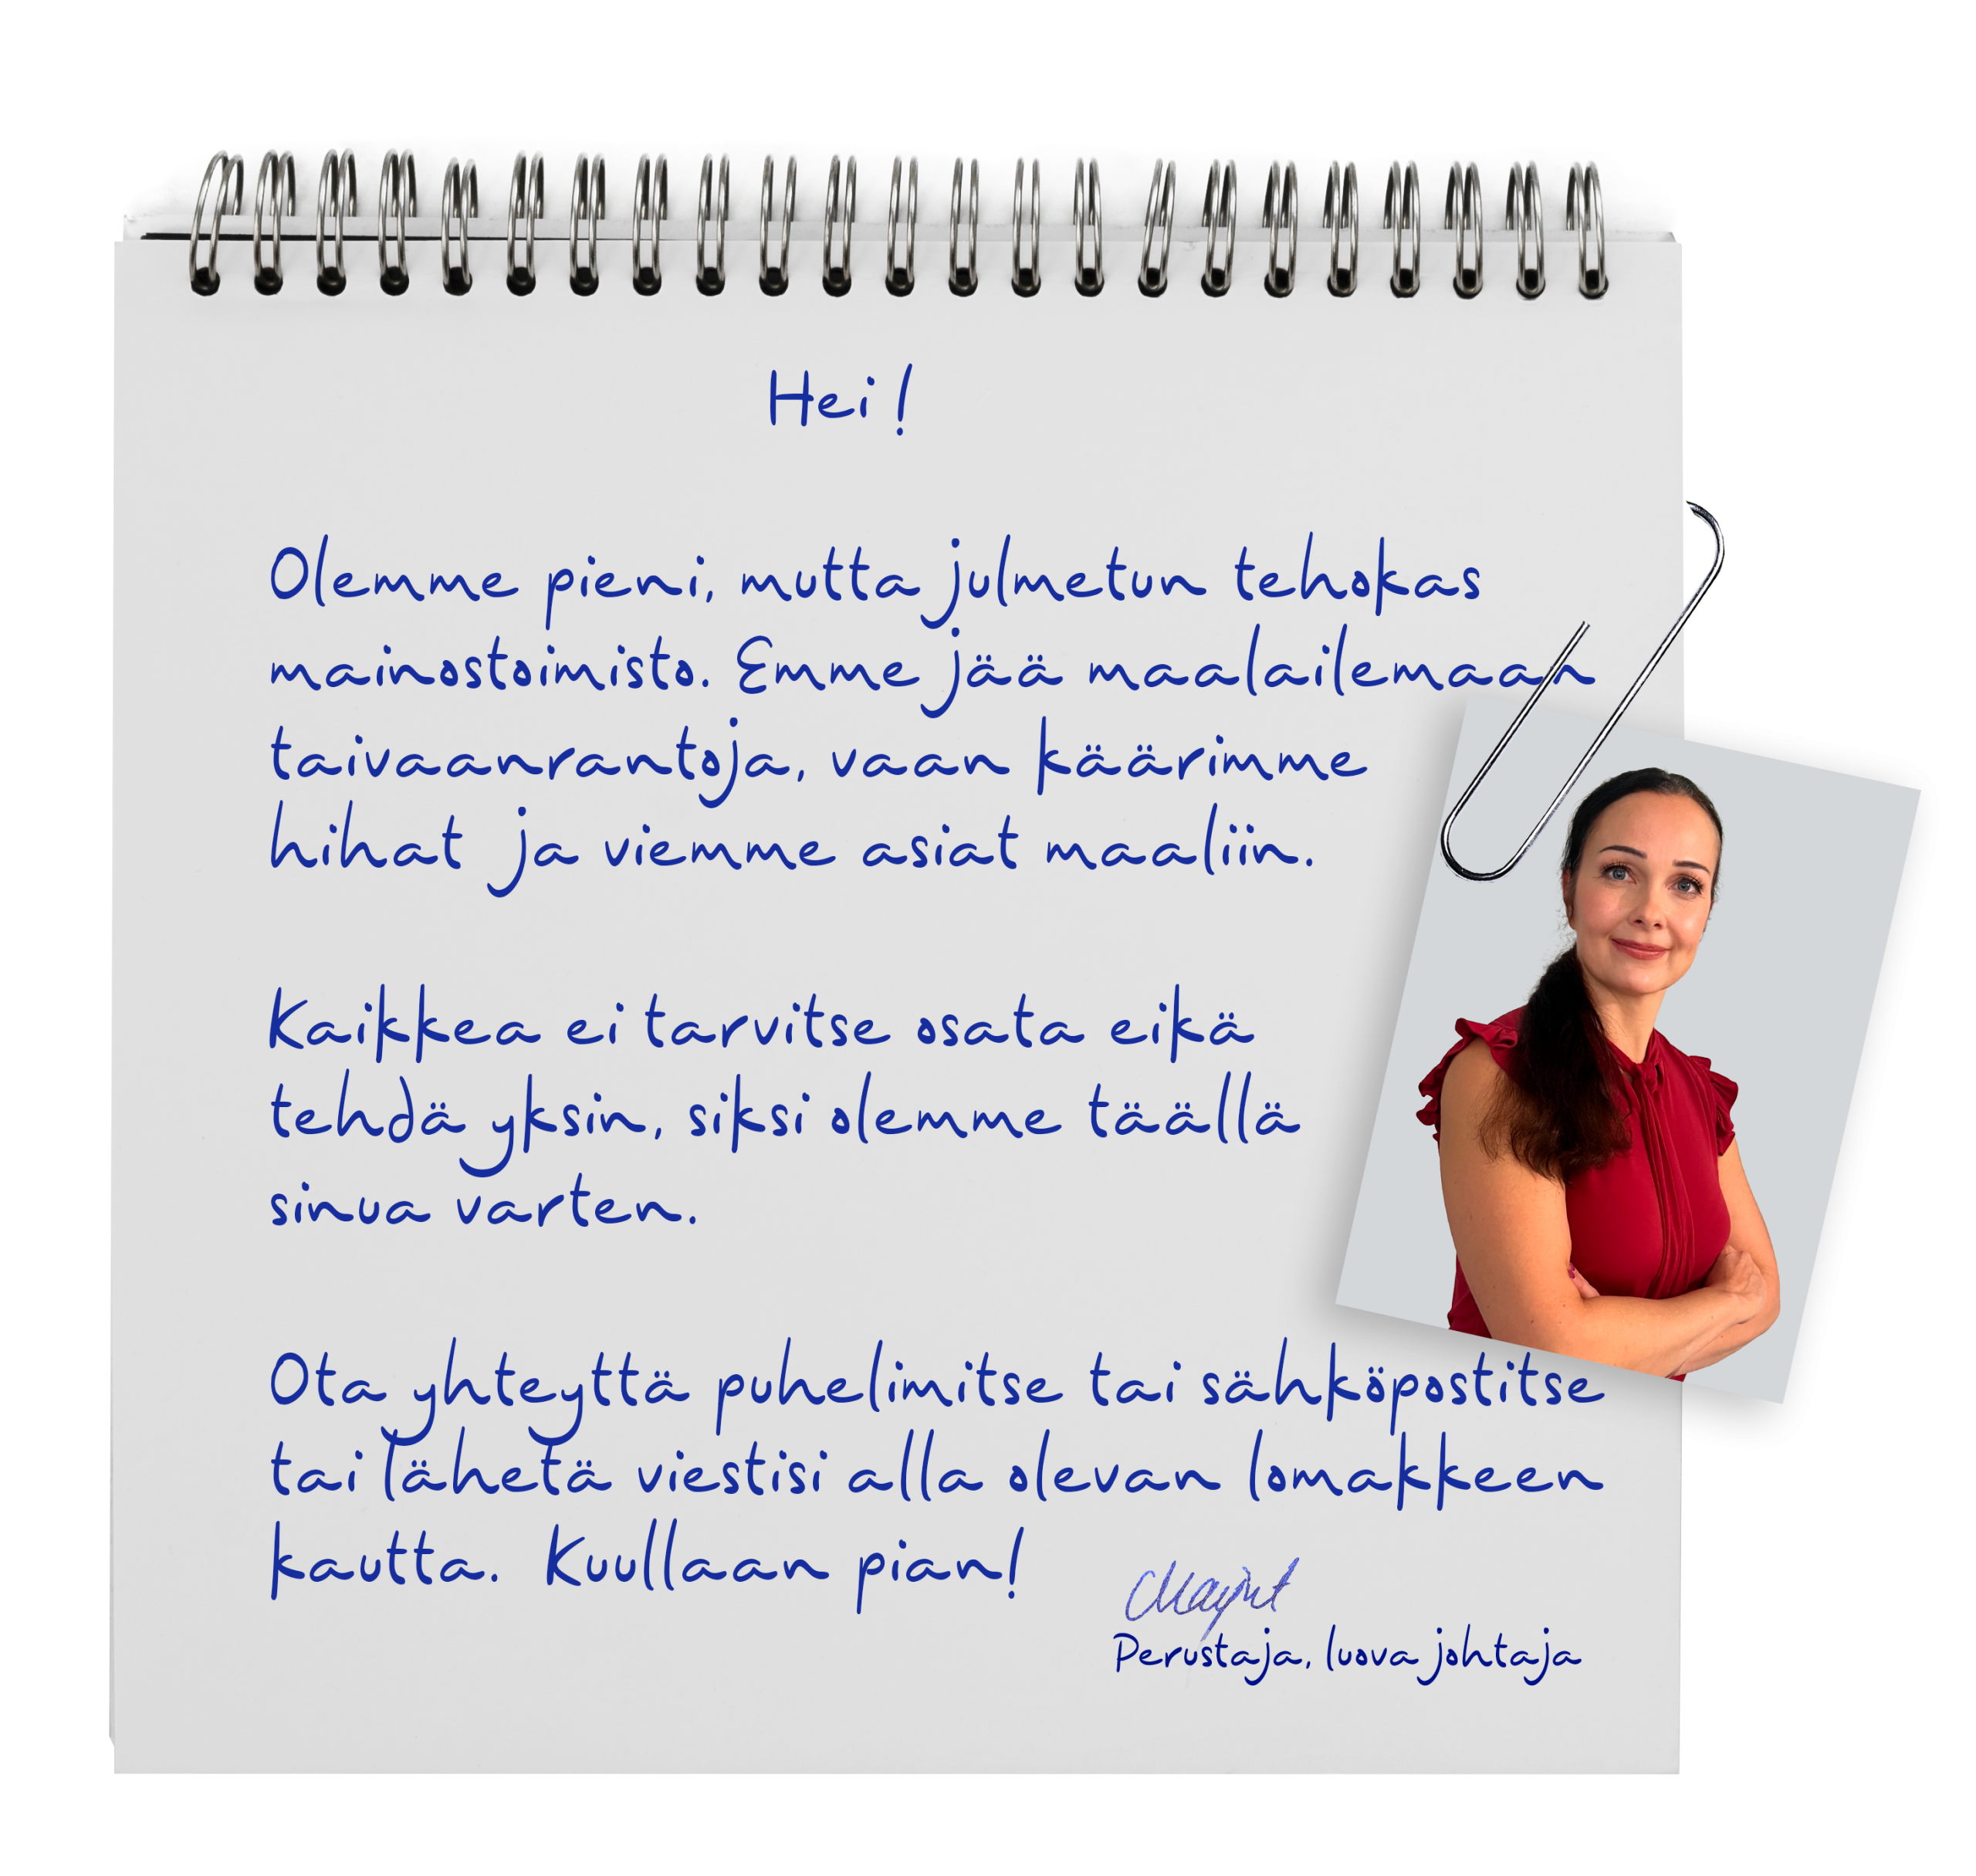 Hei!
Olemme pieni, mutta julmetun tehokas
mainostoimisto. Emme jää maalailemaan
taivaanrantoja, vaan käärimme
hihat ja viemme asiat maaliin.
Kaikkea ei tarvitse osata eikä
tehdä yksin, siksi olemme täällä
sinua varten.
Ota yhteyttä puhelimitse tai sähköpostitse
tai lähetä viestisi alla olevan lomakkeen
kautta. Kuullaan pian!
Perustaja, luova johtaja